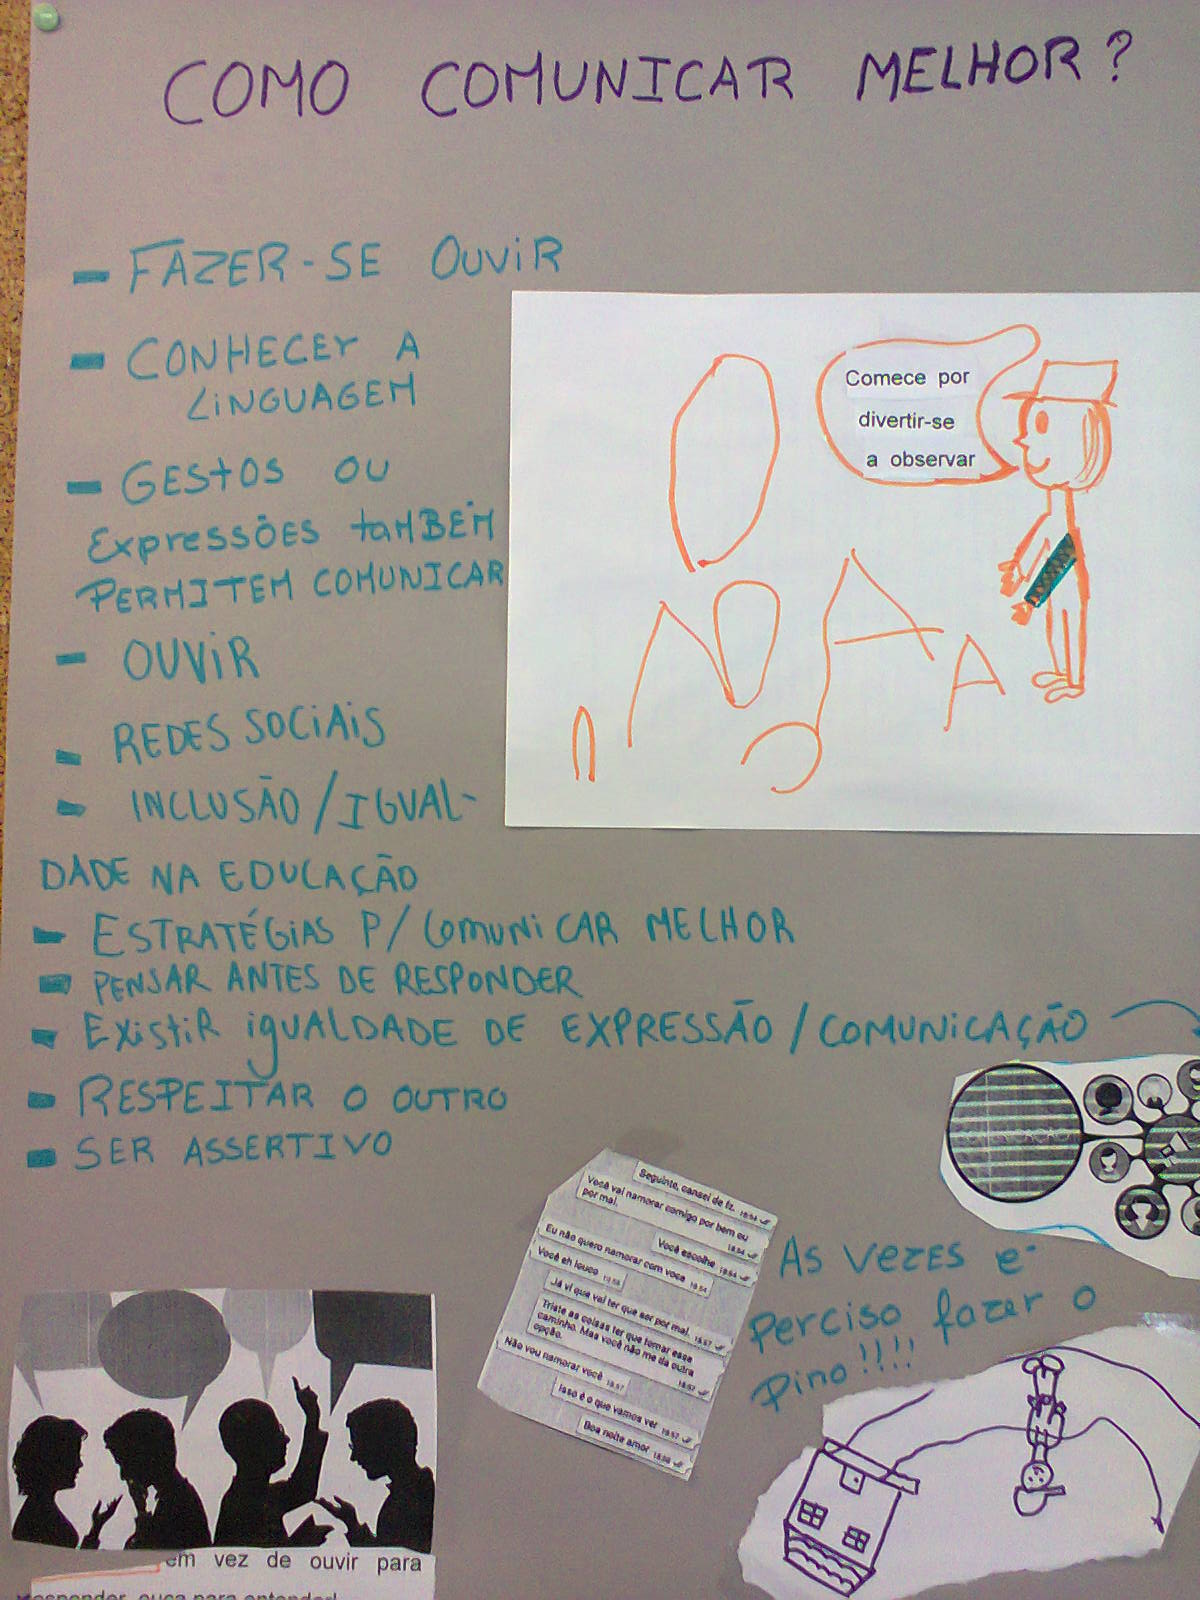 COMO COMUNICAR MELHOR?
- FAZER-SE OUVIR
- CONHECER A
LINGUAGEM
- GESTOS OU
EXPRESSÕES TAMBÉM
PERMITEM COMUNICAR
- OUVIR
- REDES SOCIAIS
- INCLUSÃO/IGUAL-
DADE NA EDUCAÇÃO
- ESTRATÉGIAS P/ COMUNICAR MELHOR
- PENSAR ANTES DE RESPONDER
- EXISTIR IGUALDADE DE EXPRESSÃO / COMUNICAÇÃO
- RESPEITAR O OUTRO
- SER ASSERTIVO
Comece por
divertir-se
a observar
Seguinte, cansei de tz.
Você vai namorar comigo por bem ou
por mal. 18:54
Você escolhe 18:54
Eu não quero namorar com voce 18:54
Você eh louco
Já vi que vai ter que ser por mal. 18:57
Triste as coisas ter que tomar esse
caminho. Mas você não me da outra
opção. 18:57
Não vou namorar você 18:57
Isso é o que vamos ver 18:57
Boa noite amor 18:58
AS VEZES E
PERCISO fazer o
pino!!!!
em vez de ouvir para
responder, ouça para entender!